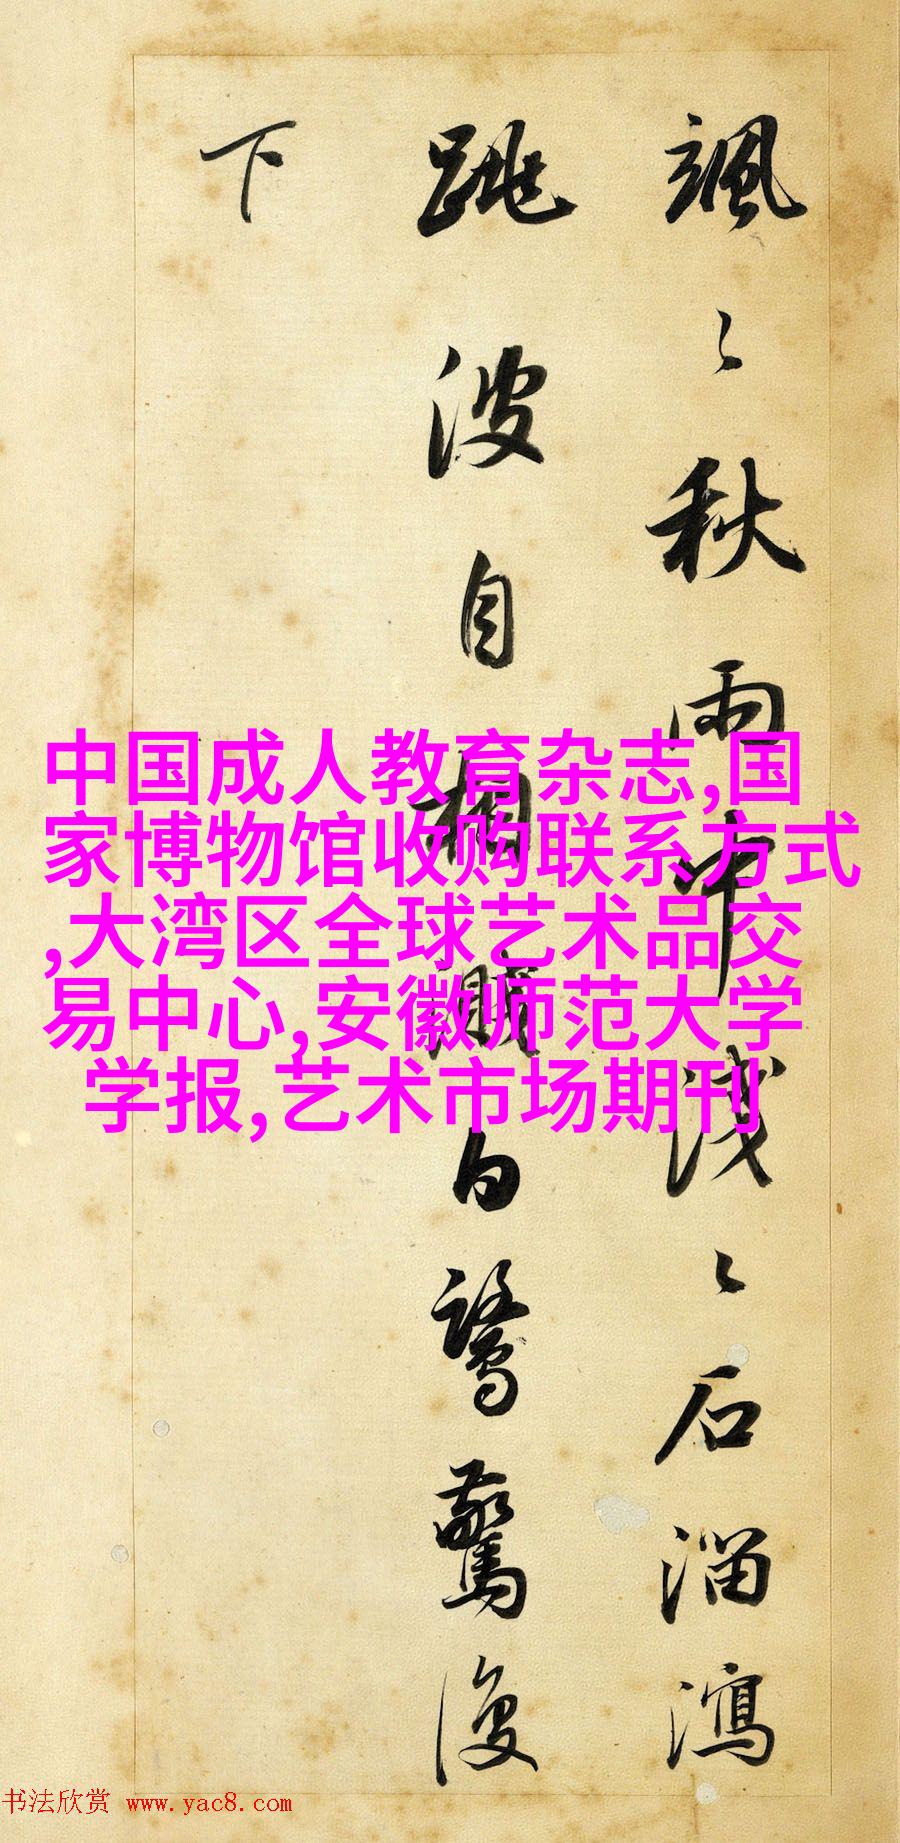 颯〻秋雨中淺〻石溜瀉
跳波自相濺白鷺驚復
下
中国成人教育杂志,国
家博物馆收购联系方式
,大湾区全球艺术品交
易中心,安徽师范大学
学报,艺术市场期刊
书法欣赏 www.yac8.com